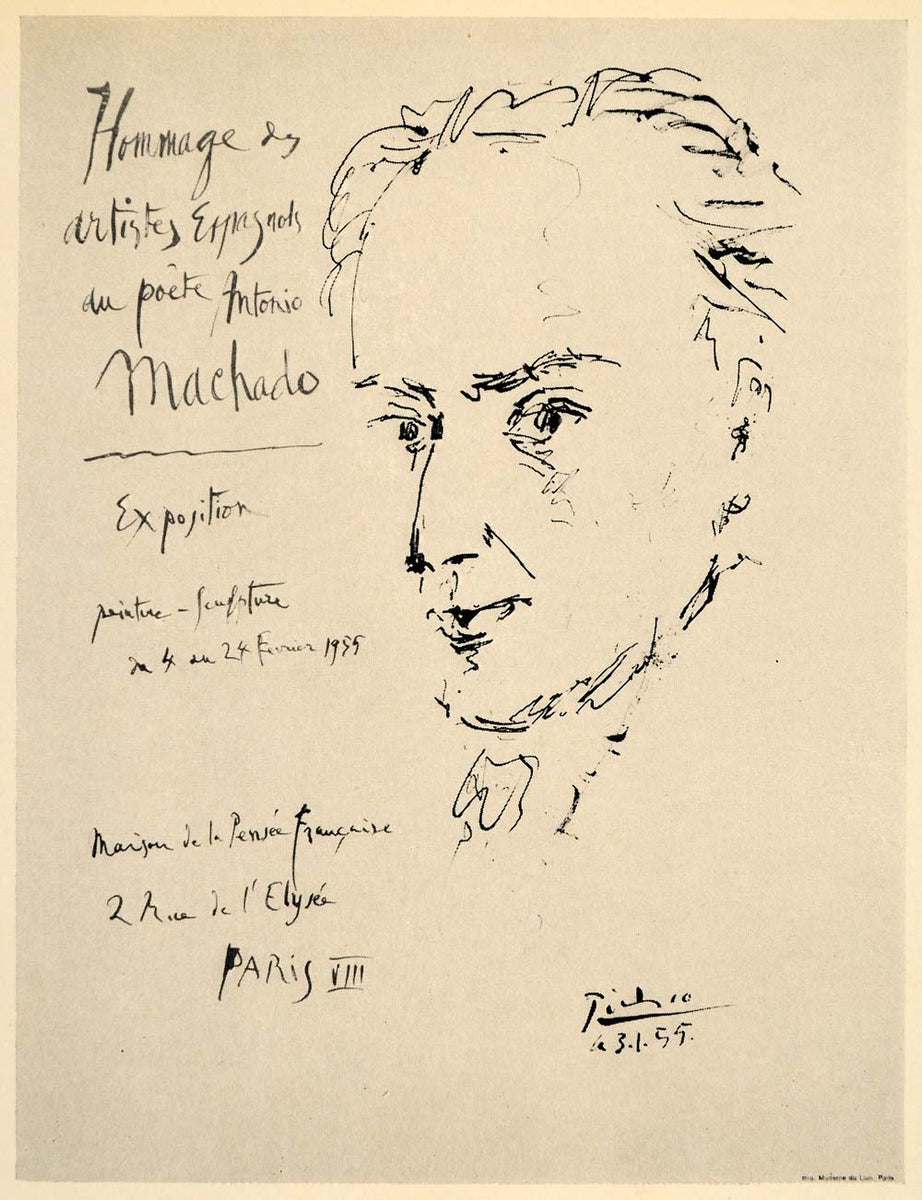 Hommage des
artistes Espagnols
au poète Antonio
Machado
Exposition
peinture - Sculpture
du 4 au 24 Fevrier 1955
Maison de la Pensée Française
2 Rue de l'Elysée
PARIS VIII
Picasso
le 3.1.55.
Imp. Moderne du Lion, Paris